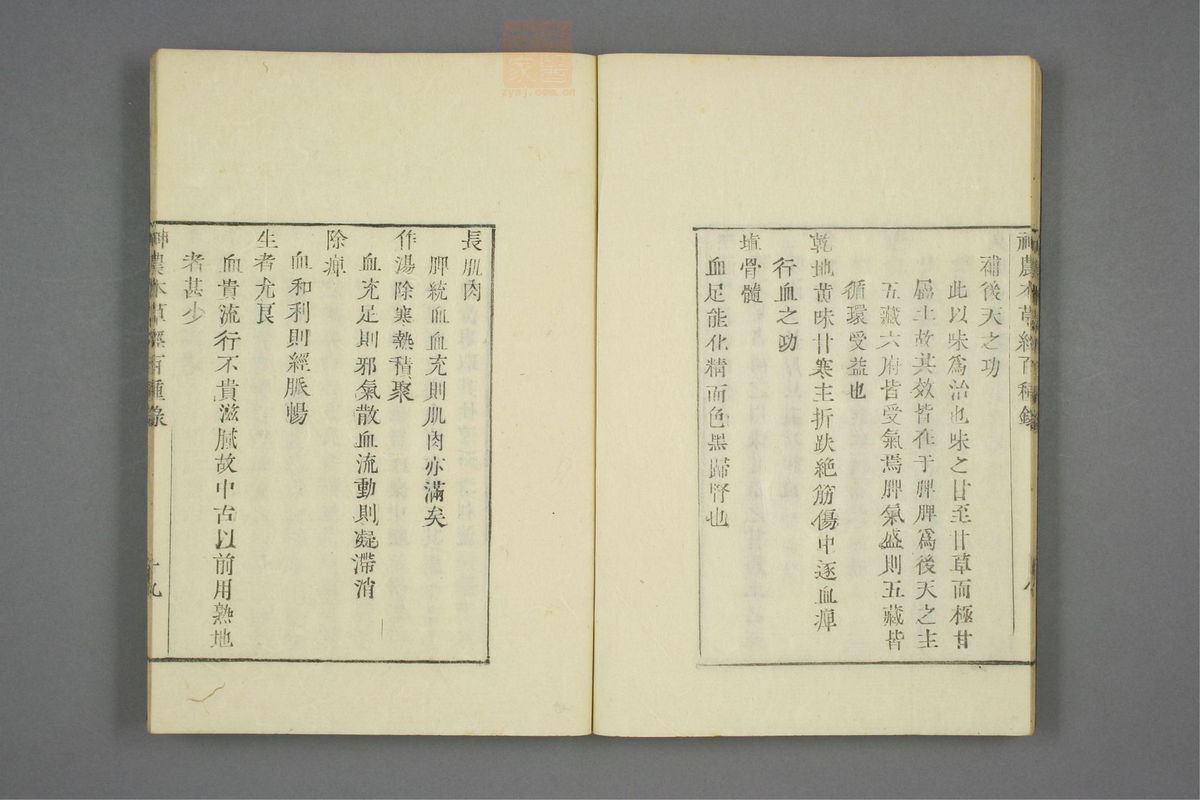 神農本草經百種錄
補後天之功
此以味爲治也味之甘至甘草而極甘
屬土故其效皆在于脾脾爲後天之主
五藏六府皆受氣焉脾氣盛則五藏皆
循環受益也
乾地黃味甘寒主折跌絶筋傷中逐血痺
行血之功
塡骨髓
血足能化精而色黑歸腎也
長肌肉
脾統血血充則肌肉亦滿矣
作湯除寒熱積聚
血充足則邪氣散血流動則凝滯消
除痺
血和利則經脈暢
生者尤良
血貴流行不貴滋膩故中古以前用熟地
者甚少
神農本草經百種錄
十九
zysj.com.cn